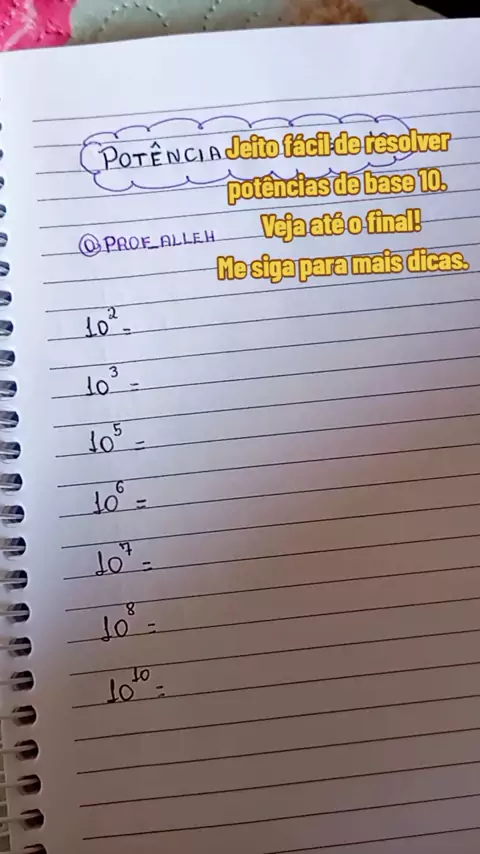 POTÊNCIA
Jeito fácil de resolver
potências de base 10.
Veja até o final!
Me siga para mais dicas.
@PROF_ALLEH
10² =
10³ =
10⁵ =
10⁶ =
10⁷ =
10⁸ =
10¹⁰ =